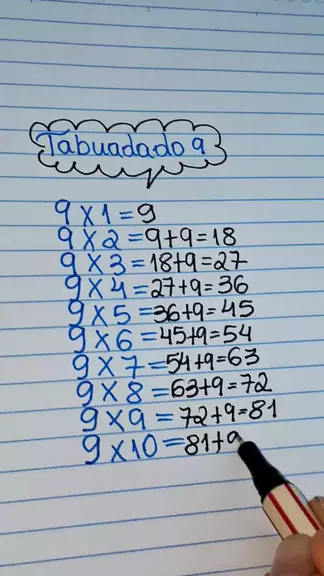 Tabuada do 9
9 X 1 = 9
9 X 2 = 9+9=18
9 X 3 = 18+9=27
9 X 4 = 27+9=36
9 X 5 = 36+9=45
9 X 6 = 45+9=54
9 X 7 = 54+9=63
9 X 8 = 63+9=72
9 X 9 = 72+9=81
9 X 10 = 81+9